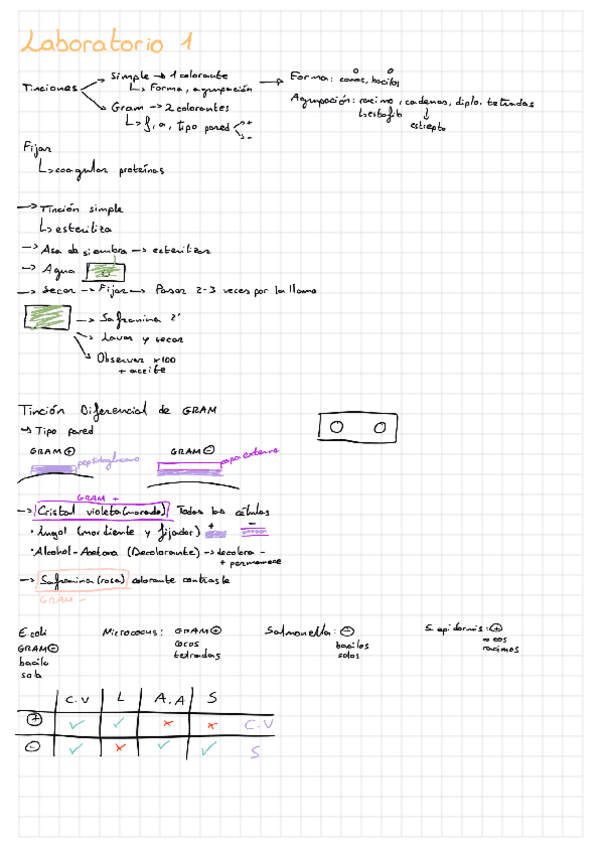 Laboratorio 1
Tinciones
Simple → 1 colorante
↳ Forma, agrupación
→ Forma: cocos, bacilos
Agrupación: racimo, cadenas, diplo, tetradas
↳ estafilo
↓ estrepto
Gram → 2 colorantes
↳ f, a, tipo pared + -
Fijar
↳ coagular proteínas
→ Tinción simple
↳ esteriliza
→ Asa de siembra → esterilizar
→ Agua
→ Secar → Fijar → Pasar 2-3 veces por la llama
→ Safranina 2'
→ Lavar y secar
→ Observar x100
+ aceite
Tinción Diferencial de GRAM
↳ Tipo pared
GRAM +
peptidoglucano
GRAM -
capa externa
GRAM +
→ Cristal violeta (morado) Todas las células
· Lugol (mordiente y fijador) + -
· Alcohol-Acetona (Decolorante) → decolora -
+ permanece
→ Safranina (rosa) colorante contraste
GRAM -
E coli
GRAM -
bacilo
solo
Micrococus: GRAM +
cocos
tetradas
Salmonella: -
bacilos
solos
S. epidermis: +
cocos
racimos
C.V L A.A S
+ ✓ ✓ × × C.V
- ✓ × ✓ ✓ S